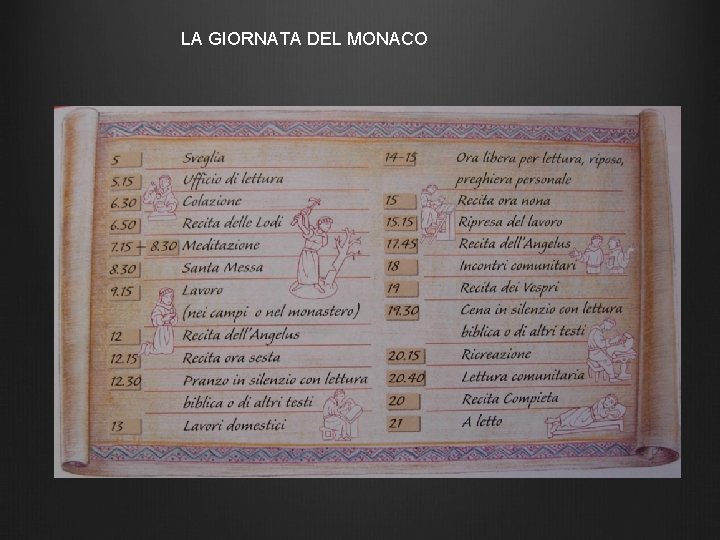 LA GIORNATA DEL MONACO
5 Sveglia
5.15 Ufficio di lettura
6.30 Colazione
6.50 Recita delle Lodi
7.15 – 8.30 Meditazione
8.30 Santa Messa
9.15 Lavoro
(nei campi o nel monastero)
12 Recita dell'Angelus
12.15 Recita ora sesta
12.30 Pranzo in silenzio con lettura
biblica o di altri testi
13 Lavori domestici
14-15 Ora libera per lettura, riposo,
preghiera personale
15 Recita ora nona
15.15 Ripresa del lavoro
17.45 Recita dell'Angelus
18 Incontri comunitari
19 Recita dei Vespri
19.30 Cena in silenzio con lettura
biblica o di altri testi
20.15 Ricreazione
20.40 Lettura comunitaria
20 Recita Compieta
21 A letto